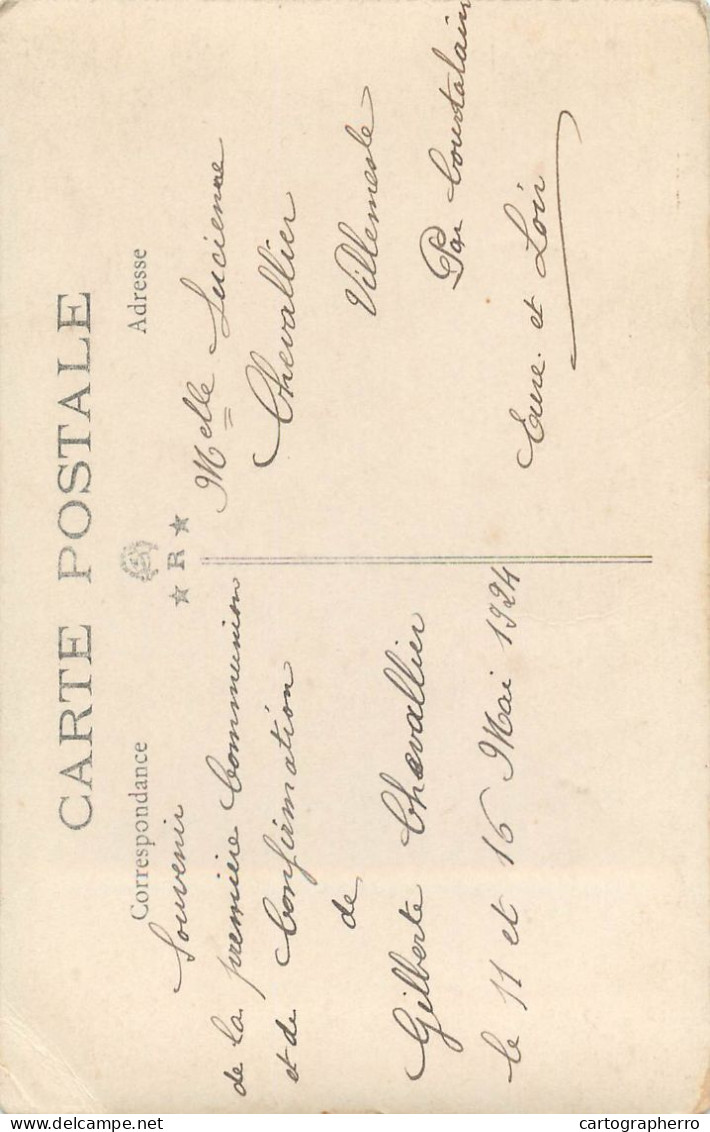 CARTE POSTALE
Correspondance
R
Adresse
Souvenir
de la première Communion
et de Confirmation
de
Gilberte Chevallier
le 11 et 16 Mai 1924
Melle Lucienne
Chevallier
Villemesle
Par Courtalain
Eure et Loir
Delcampe.net
cartographerro